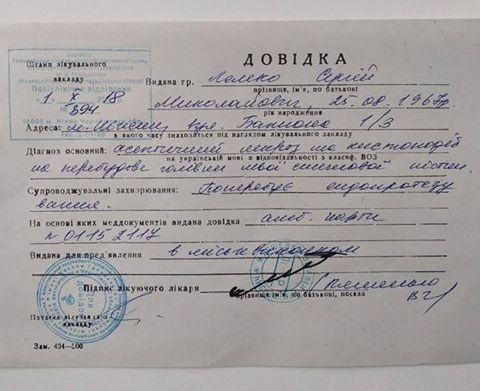 Штамп лікувального
закладу
ДОВІДКА
Видана гр. Лелеко Сергій
прізвище, ім'я, по батькові
1 X 18
Миколайович, 25.08.1967р.
№ 394
рік народження
Адреса: м. Ніжин, вул.
1/3
з якого часу знаходиться під наглядом лікувального закладу
Діагноз основний: асептичний некроз та кистоподібна
на українській мові в відповідальності з класиф. ВОЗ
перебудова голівки лівої стегнової кістки.
Супроводжувальні захворювання: Потребує ендопротезу
вання.
На основі яких меддокументів видана довідка амб. карти
№ 01152117
Видана для пред'явлення в міськвиконком
Підпис лікуючого лікаря
прізвище, ім'я, по батькові, посада
закладу
Зам. 434—500